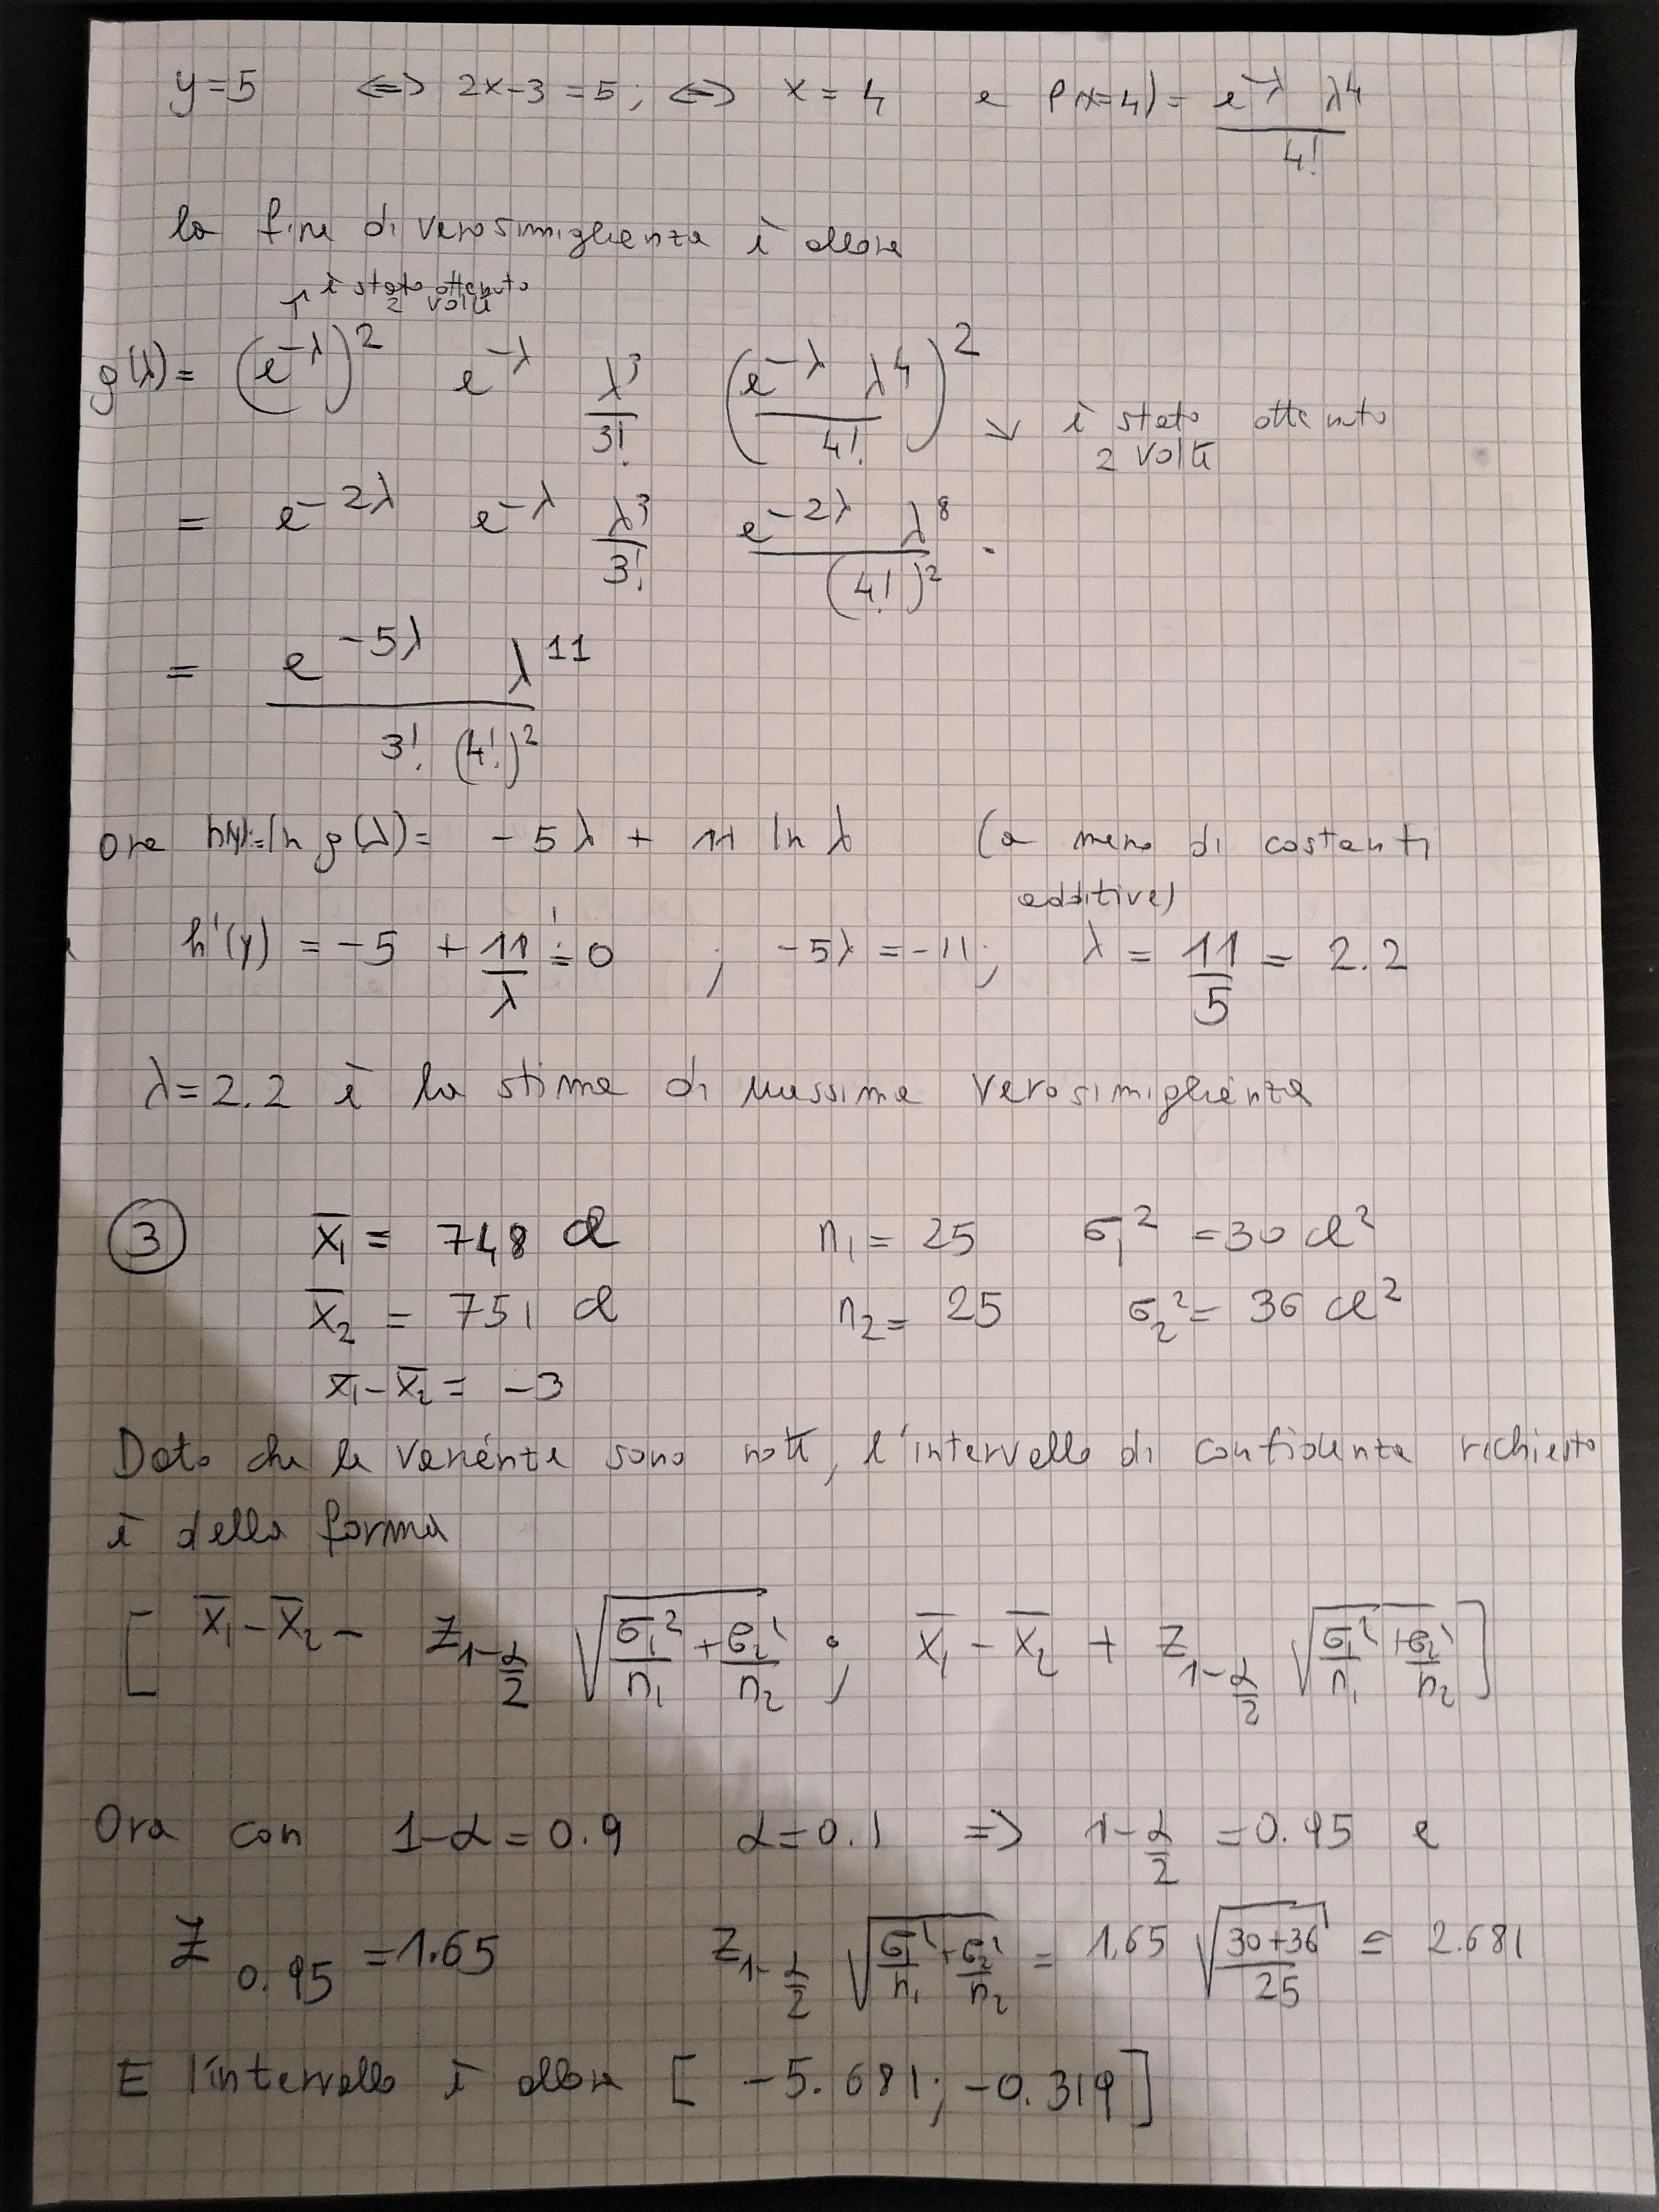 y=5 ⇔ 2x-3=5; ⇔ x=4 e P(x=4)= e^-λ λ^4 / 4!
la funz di verosimiglianza è allora
↑ è stato ottenuto 2 volte
g(λ)= (e^-λ)^2 e^-λ λ^3/3! (e^-λ λ^4 / 4!)^2 ↘ è stato ottenuto 2 volte
= e^-2λ e^-λ λ^3/3! e^-2λ λ^8 / (4!)^2 .
= e^-5λ λ^11 / 3! (4!)^2
Ora h(y)=ln g(λ)= -5λ + 11 ln λ (a meno di costanti additive)
h'(y) = -5 + 11/λ = 0 ; -5λ = -11; λ = 11/5 = 2.2
λ=2.2 è la stima di massima verosimiglianza
③ x̄₁ = 748 cl n₁ = 25 σ₁² = 30 cl²
x̄₂ = 751 cl n₂ = 25 σ₂² = 36 cl²
x̄₁-x̄₂ = -3
Dato che le varianze sono note, l'intervallo di confidenza richiesto
è della forma
[ x̄₁-x̄₂ - Z_1-α/2 √(σ₁²/n₁ + σ₂²/n₂) ; x̄₁-x̄₂ + Z_1-α/2 √(σ₁²/n₁ + σ₂²/n₂) ]
Ora con 1-α=0.9 α=0.1 => 1-α/2 =0.95 e
Z_0.95 =1.65 Z_1-α/2 √(σ₁²/n₁ + σ₂²/n₂) = 1.65 √((30+36)/25) = 2.681
E l'intervallo è allora [ -5.681; -0.319]